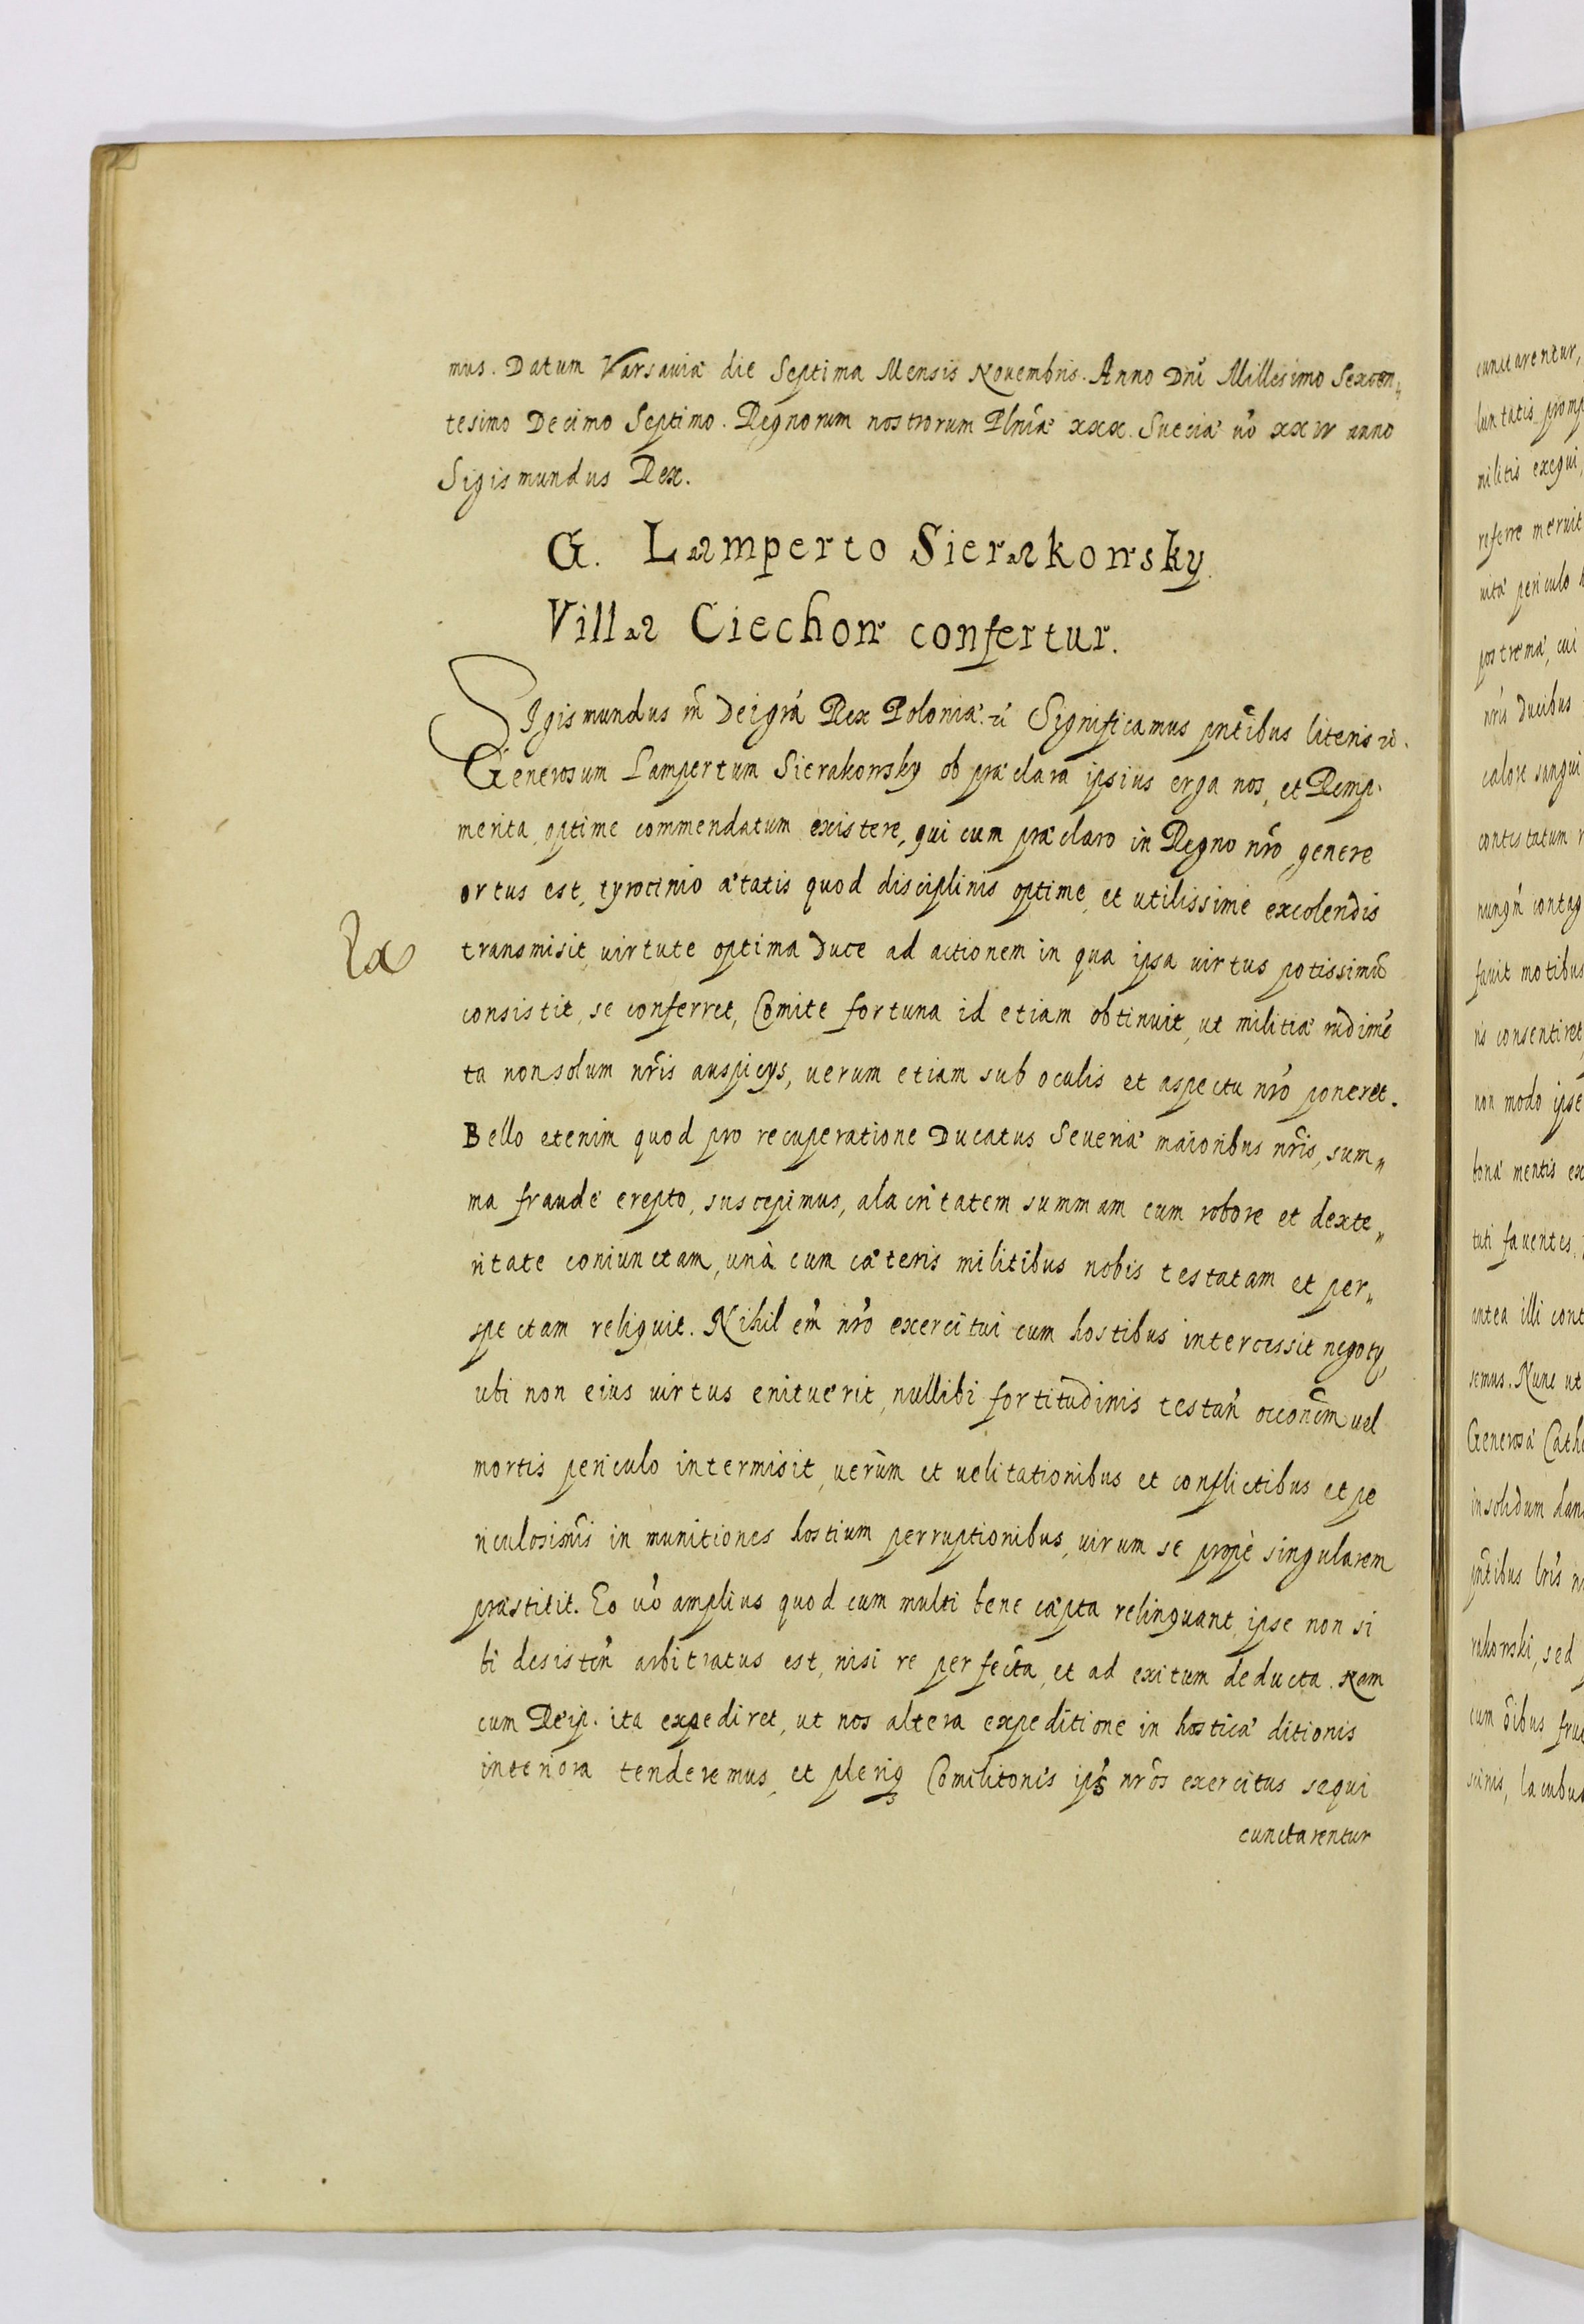 mus. Datum Varsaviæ die Septima Mensis Novembris. Anno Dn̄i Millesimo Sexcen„
tesimo Decimo Septimo. Regnorum nostrorum Plniæ xxx. Sueciæ uo xxiv anno
Sigismundus Rex.
G. Lamperto Sierakowsky
Villa Ciechow confertur.
SIgismundus III Dei gra Rex Poloniæ. Significamus pntibus literis
Generosum Lampertum Sierakowsky ob præclara ipsius erga nos, et Remp.
merita, optime commendatum existere, qui cum præclaro in Regno nro genere
ortus est, tyrocinio ætatis quod disciplinis optime, et utilissime excolendis
transmisit, uirtute optima Duce ad actionem in qua ipsa uirtus potissimū
consistit, se conferret, Comite fortuna id etiam obtinuit, ut militiæ rudimē
ta non solum nris auspicys, uerum etiam sub oculis et aspectu nro poneret.
Bello etenim quod pro recuperatione Ducatus Seueriæ maioribus nris, sum„
ma fraude erepto, suscepimus, alacritatem summam cum robore et dexte„
ritate coniunctam, unà cum cæteris militibus nobis testatam et per„
spectam reliquit. Nihil em̄ nro exercitui cum hostibus intercessit negoty,
ubi non eius uirtus enituerit, nullibi fortitudinis testan̄ occonem uel
mortis periculo intermisit, uerùm et uelitationibus et conflictibus et pe
riculosismis in munitiones hostium perruptionibus, uirum se propè singularem
præstitit. Eo uo amplius quod cum multi bene cæpta relinquant, ipse non si
bi desisten̄ arbitratus est, nisi re perfecta, et ad exitum deducta. Nam
cum Reip. ita expediret, ut nos altera expeditione in hosticæ ditionis
interiora tenderemus, et pleriq Comilitones nros exercitus sequi
cunctarentur
cunctarentur,
luntatis promp
militis exequi,
referre meruit
uitæ periculo
postrema, cui
nris Ducibus
calore sangui
contestatum
nunqm contag
fauit motibus
ris consentiret,
non modo ipse
bonæ mentis ex
tuti fauentes,
antea illi cont
semus. Nunc ut
Generosæ Cath
in solidum dan
pntibus lris
rakowski, sed
cum oibus fruc
scinis, lacubus